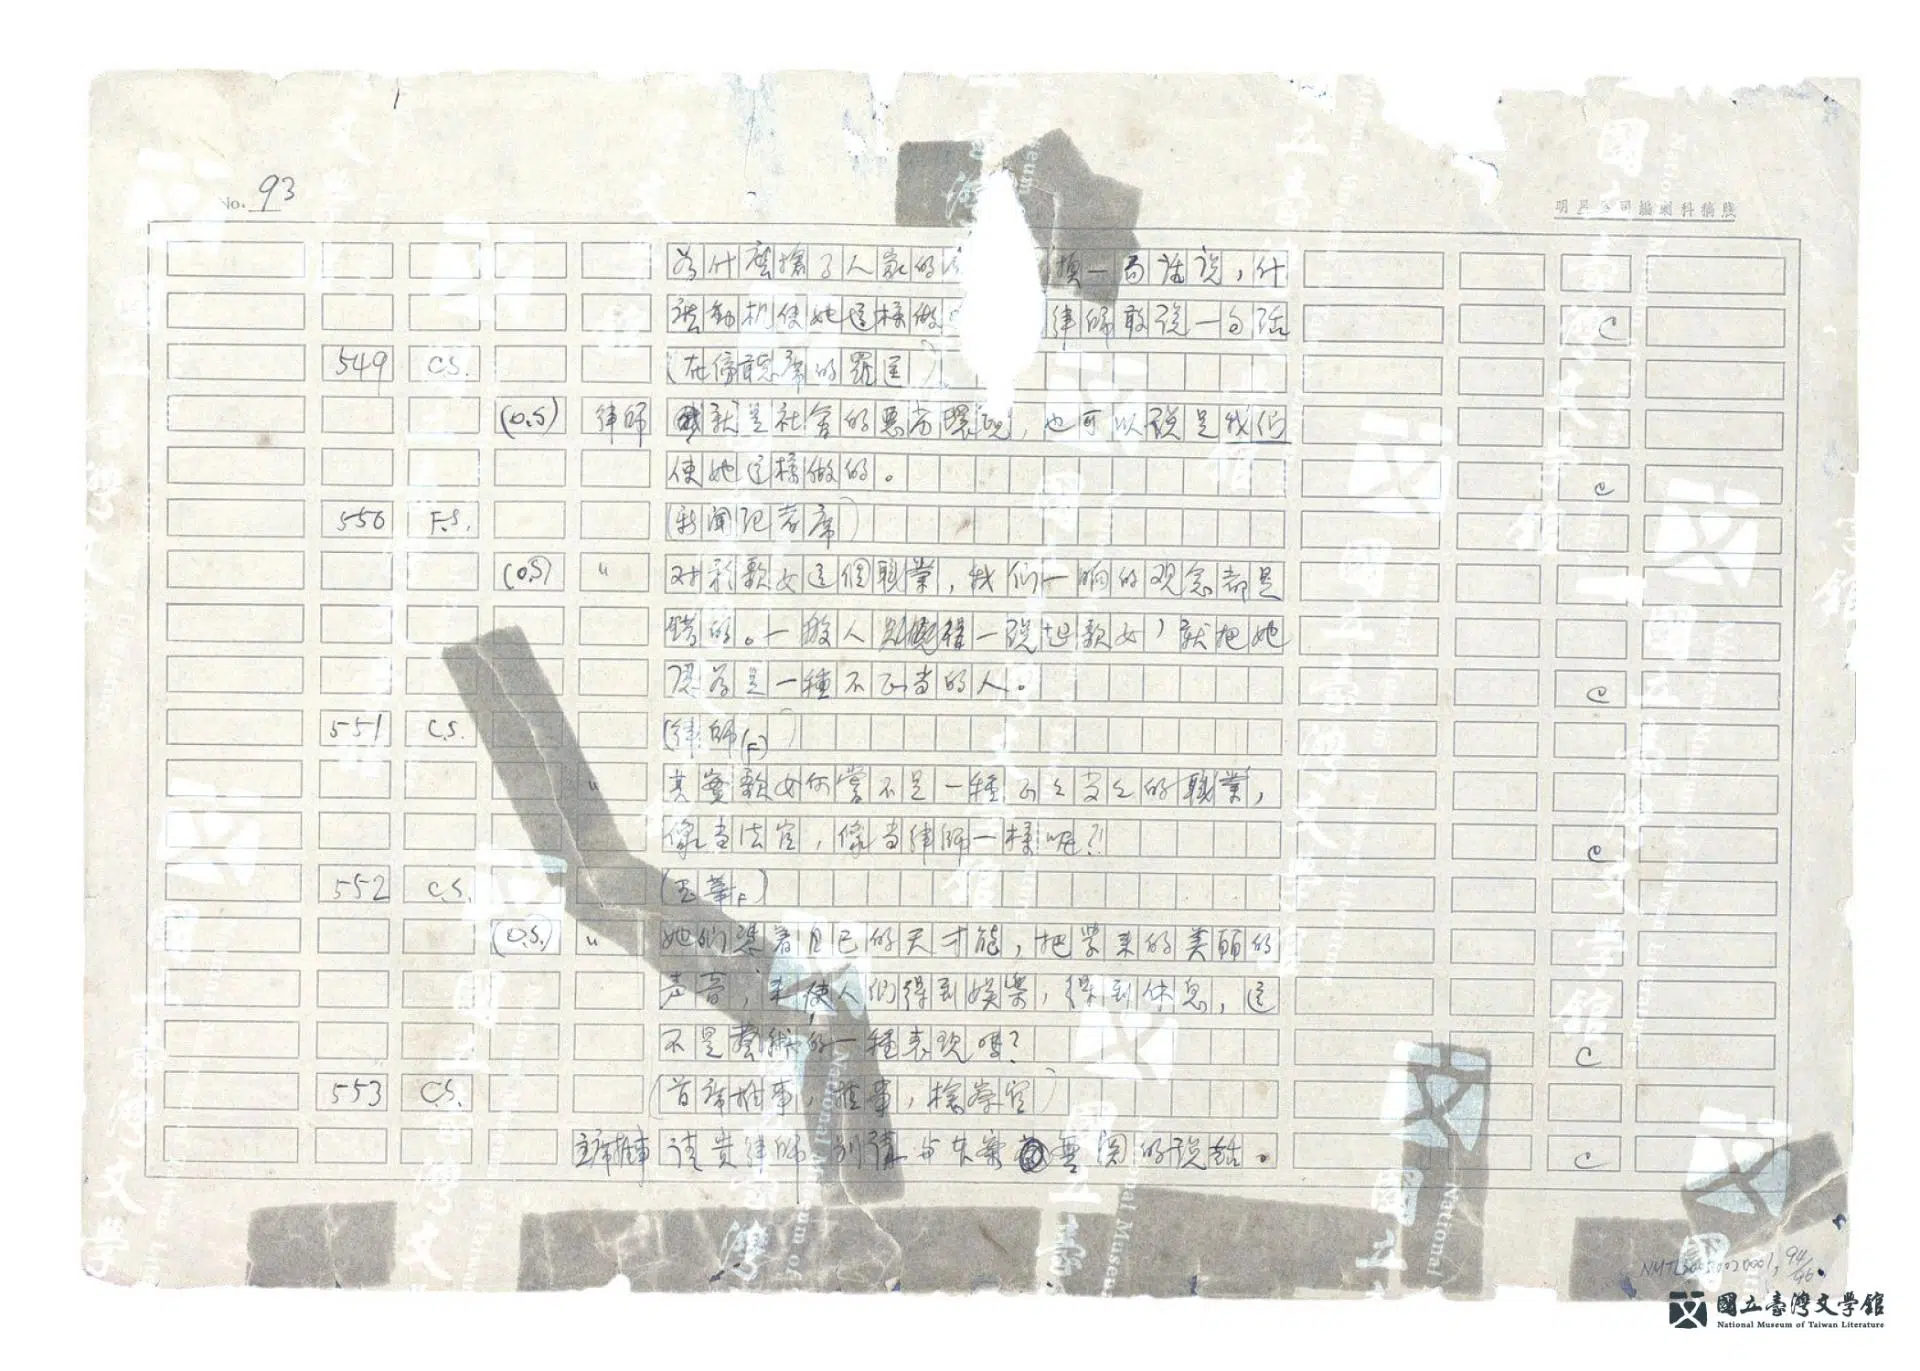 No. 93
明星公司編劇科稿牋
為什麼搶了人家的 換一句話說,什
麼動机使她這樣做 律師敢說一句話 C
549 C.S. (在傍聽席的羅
(O.S) 律師 就是社會的惡劣環境,也可以說是我们
使她這樣做的。 C
550 F.S. (新聞記者席)
(O.S) 〃 对於歌女這個職業,我们一响的观念都是
錯的。一般人 一說起歌女,就把她
認為是一種不正当的人。 C
551 C.S. (律師(F))
〃 其實歌女何嘗不是一種正々当々的職業,
像当法官,像当律師一樣呢?! C
552 C.S. (玉華F)
(O.S.) 〃 她们憑着自已的天才能,把學来的美丽的
声音,来使人们得到娱樂,得到休息,這
不是藝術的一種表現嗎? C
553 C.S. (首席推事,推事,檢察官)
主席推事 請貴律師别講与本案無関的說話。 C
94/96
國立臺灣文學館
National Museum of Taiwan Literature